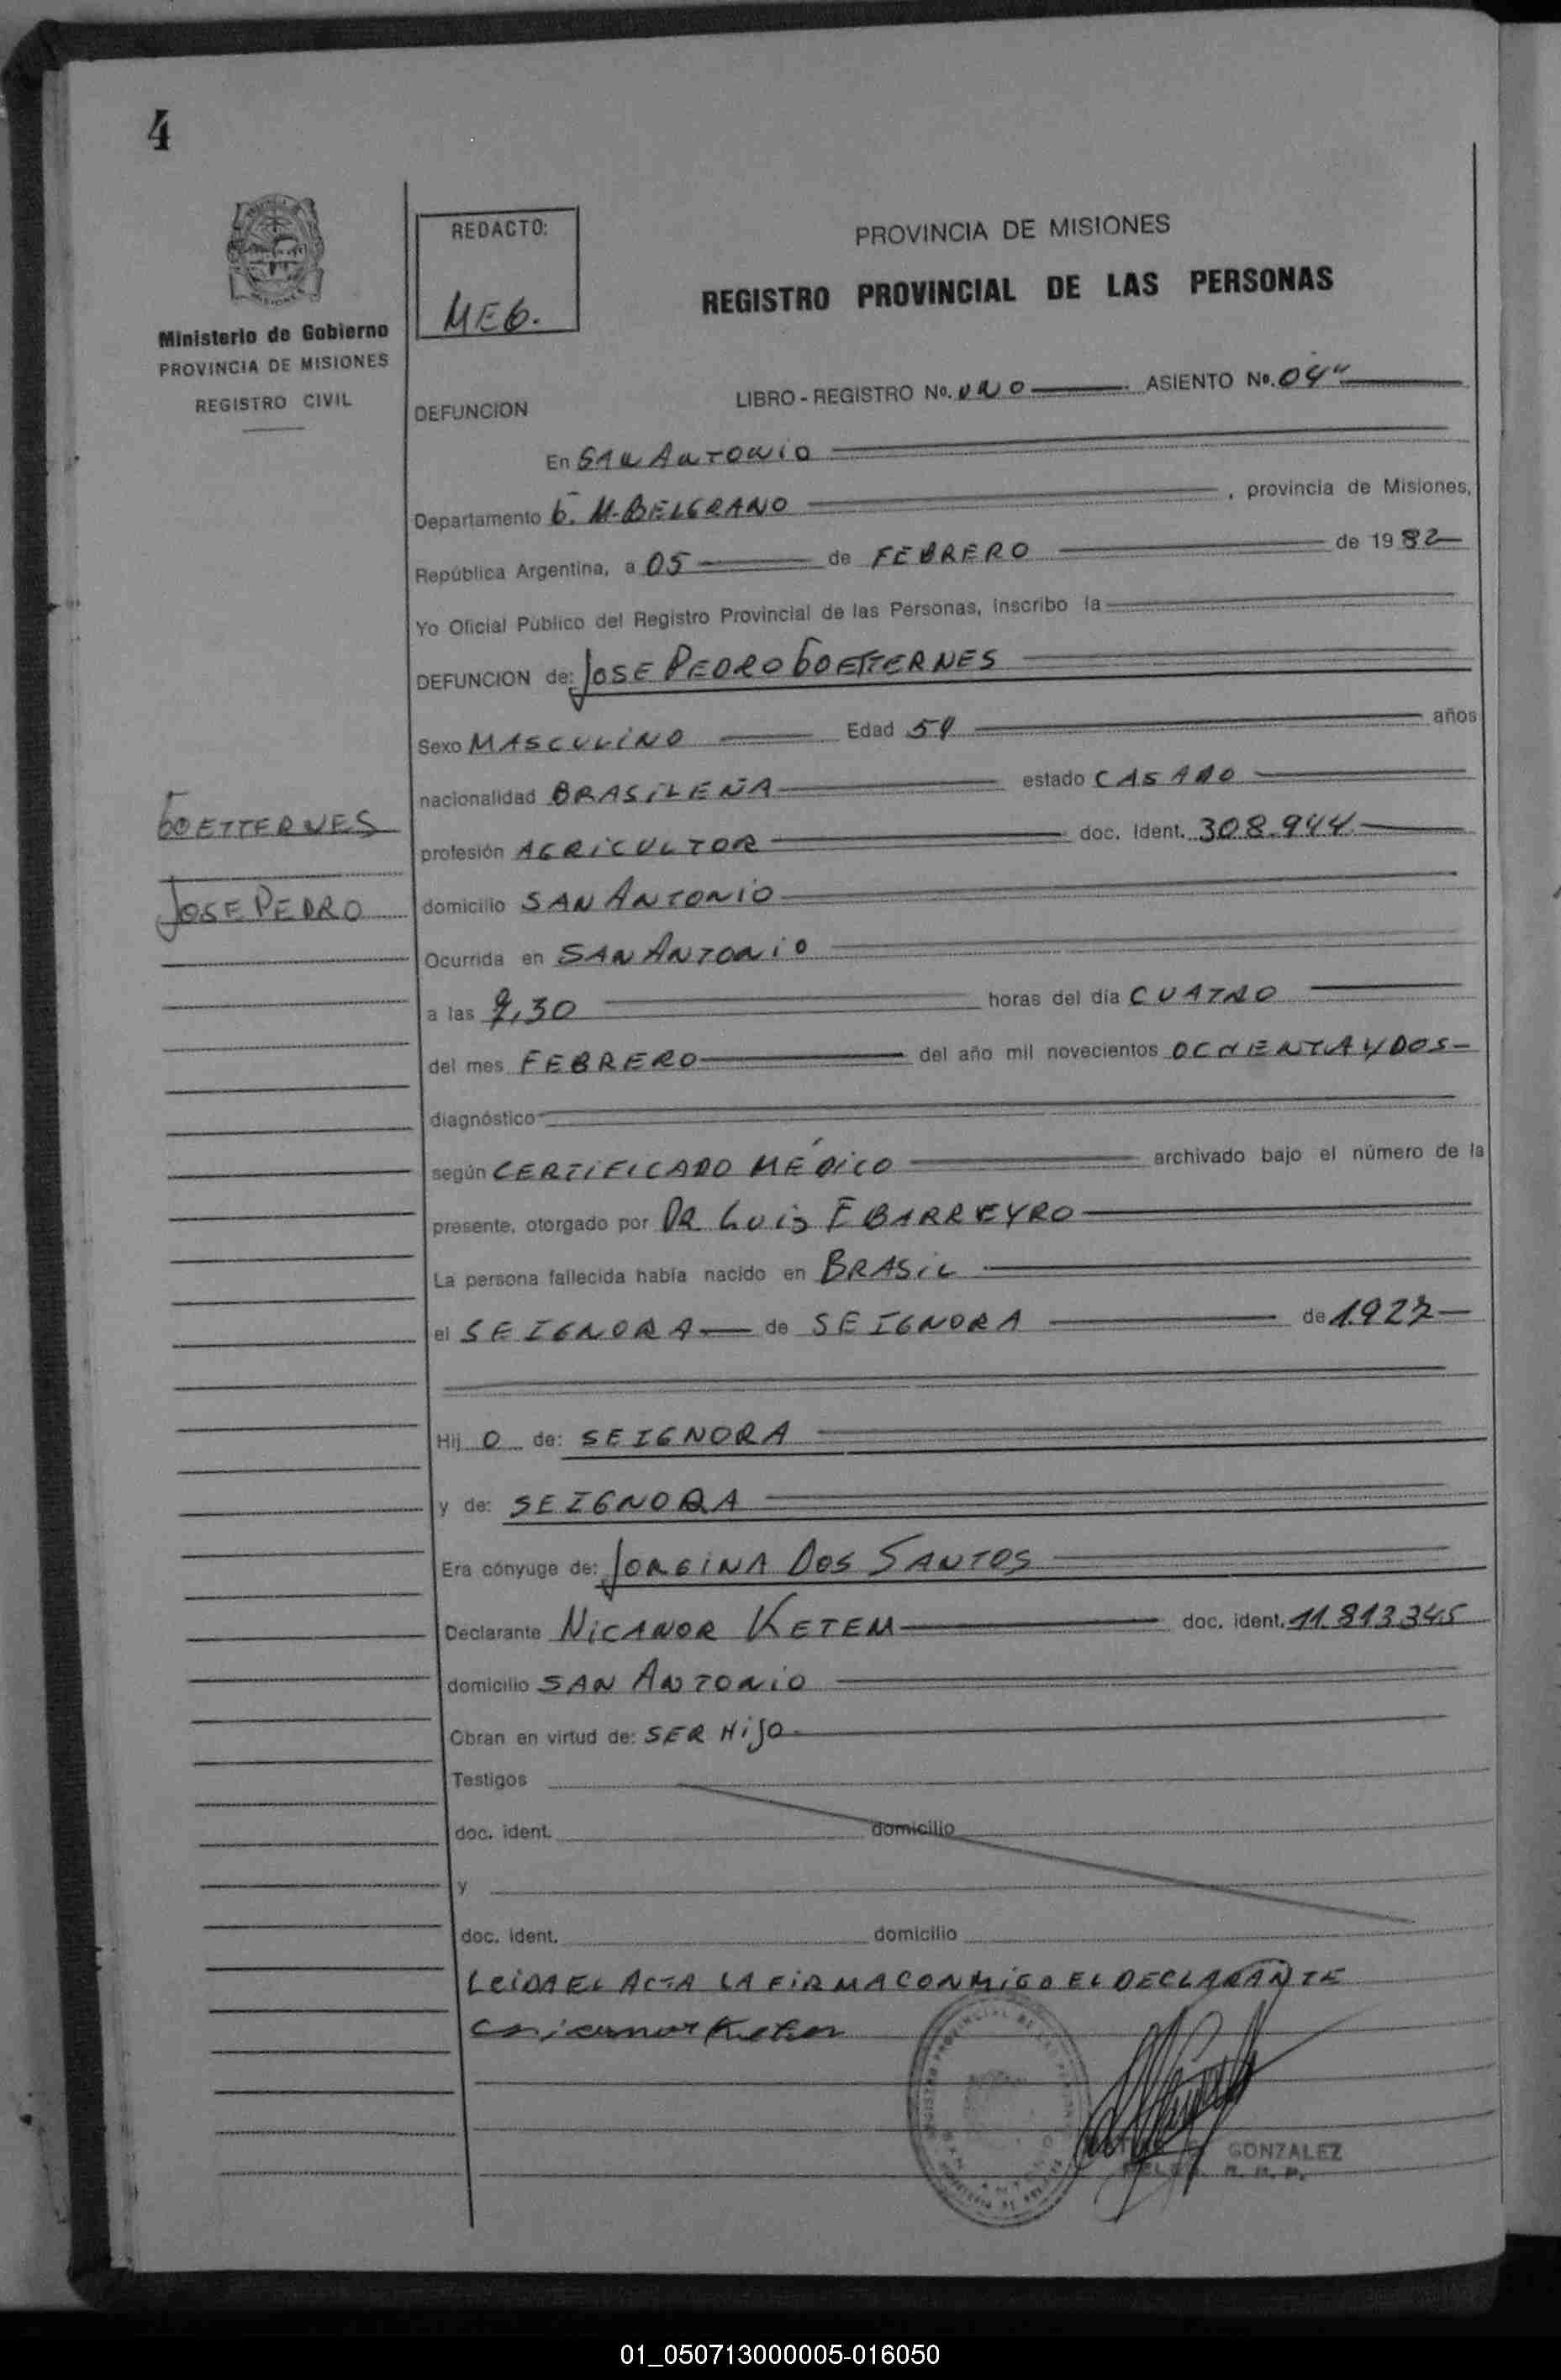 4
REDACTO:
MEG.
Ministerio de Gobierno
PROVINCIA DE MISIONES
REGISTRO CIVIL
PROVINCIA DE MISIONES
REGISTRO PROVINCIAL DE LAS PERSONAS
LIBRO - REGISTRO No. UNO ASIENTO No. 04"
DEFUNCION
En SAN ANTONIO
Departamento G. M. BELGRANO, provincia de Misiones,
República Argentina, a 05 de FEBRERO de 1982
Yo Oficial Público del Registro Provincial de las Personas, inscribo la
DEFUNCION de: JOSE PEDRO GOETTERNES
Sexo MASCULINO Edad años
nacionalidad BRASILEÑA estado CASADO
GOETTERNES
profesión AGRICULTOR doc. ident. 308.944
JOSE PEDRO
domicilio SAN ANTONIO
Ocurrida en SAN ANTONIO
a las horas del día CUATRO
del mes FEBRERO del año mil novecientos OCHENTA Y DOS
diagnóstico
según CERTIFICADO MÉDICO archivado bajo el número de la
presente, otorgado por DR LUIS F BARREYRO
La persona fallecida había nacido en BRASIL
el SE IGNORA de SE IGNORA de
Hij O de: SE IGNORA
y de: SE IGNORA
Era cónyuge de: JORGINA DOS SANTOS
Declarante NICANOR KETEM doc. ident. 11.813.345
domicilio SAN ANTONIO
Obran en virtud de: SER HIJO
Testigos
doc. ident. domicilio
y
doc. ident. domicilio
LEIDA EL ACTA LA FIRMA CONMIGO EL DECLARANTE
GONZALEZ
01_050713000005-016050